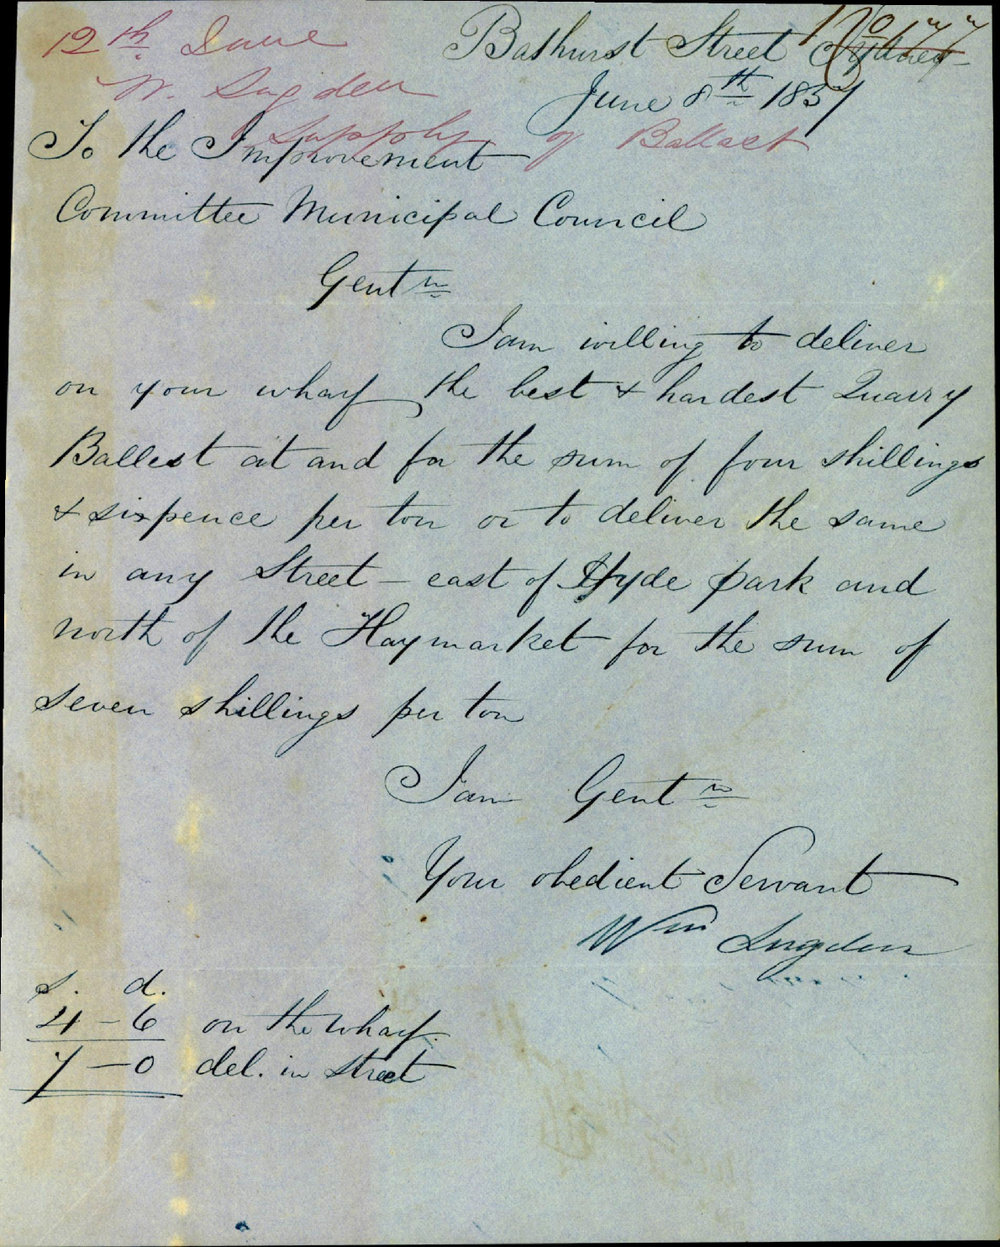 12th June
W. Sugden
Supply of Ballast
Bathurst Street Sydney
June 8th 1857
To the Improvement
Committee Municipal Council
Gentn
I am willing to deliver
on your wharf the best & hardest Quarry
Ballest at and for the sum of four shillings
& sixpence per ton or to deliver the same
in any Street - east of Hyde park and
north of the Haymarket for the sum of
seven shillings per ton
I am Gentn
Your obedient Servant
Wm Sugden
s. d.
4 - 6 on the wharf.
7 - 0 del. in street